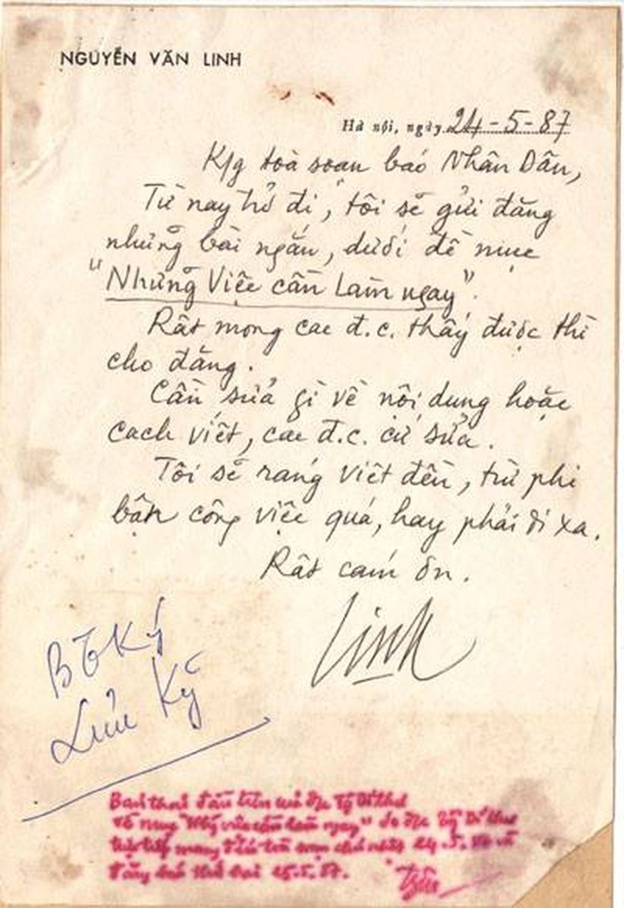 NGUYỄN VĂN LINH
Hà nội, ngày 24-5-87
K/g toà soạn báo Nhân Dân,
Từ nay trở đi, tôi sẽ gửi đăng
những bài ngắn, dưới đề mục
"Những Việc cần Làm ngay".
Rất mong các đ.c. thấy được thì
cho đăng.
Cần sửa gì về nội dung hoặc
cách viết, các đ.c. cứ sửa.
Tôi sẽ ráng viết đều, trừ phi
bận công việc quá, hay phải đi xa.
Rất cám ơn.
Linh
Lưu Kỹ
Bản thảo đầu tiên của đ/c Tg Bí thư
về mục "Những việc cần làm ngay" do đ/c Tg Bí thư
trực tiếp mang đến toà soạn chủ nhật 24-5-87 và
đăng báo thứ hai 25-5-87.